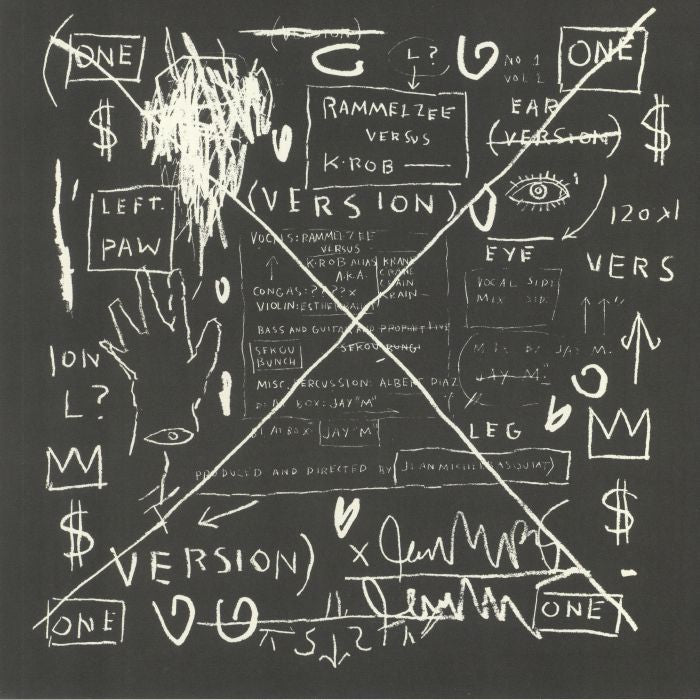 (VERSION)
ONE
L?
NO 1
VOL 2
ONE
$
RAMMELZEE
VERSUS
K-ROB
EAR
(VERSION)
$
LEFT
PAW
(VERSION)
120 XI
VERS
EYE
VOCALS: RAMMELZEE
VERSUS
K-ROB ALIAS
A.K.A.
KRANE
CRANE
CRAIN
KRAIN
VOCAL SIDE
MIX SIDE
CONGAS: ????X
VIOLIN: ESTHER
BASS AND GUITAR AND PROPHET LIVE
SEKOU
BUNCH
SEKOU
MISC. PERCUSSION: ALBERT DIAZ
BOX: JAY "M"
JAY M.
JAY M
ION
L?
BEAT BOX:
JAY "M"
LEG
PRODUCED AND DIRECTED BY
JEAN MICHEL BASQUIAT
$
$
VERSION)
X
ONE
ONE